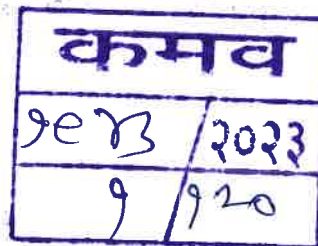 कमव
१९४३/२०२३
१/१२०